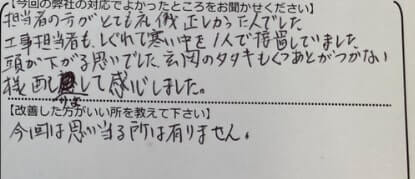 【今回の弊社の対応でよかったところをお聞かせください】
担当者の方がとても礼儀正しかった人でした。
工事担当者も、しぐれて寒い中を1人で接置していました
頭が下がる思いでした、玄関のタタキもくつあとがつかない
様配慮して感じました。
【改善した方がいい所を教えて下さい】
今回は思い当る所は有りません。